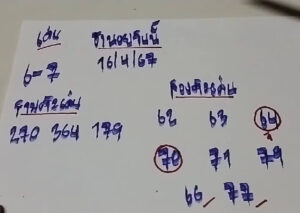 เด่น
6-7
งวดวันนี้
16/4/67
สามตัวเด่น
270 364 179
สองตัวเด่น
62 63 64
70 71 79
66 77